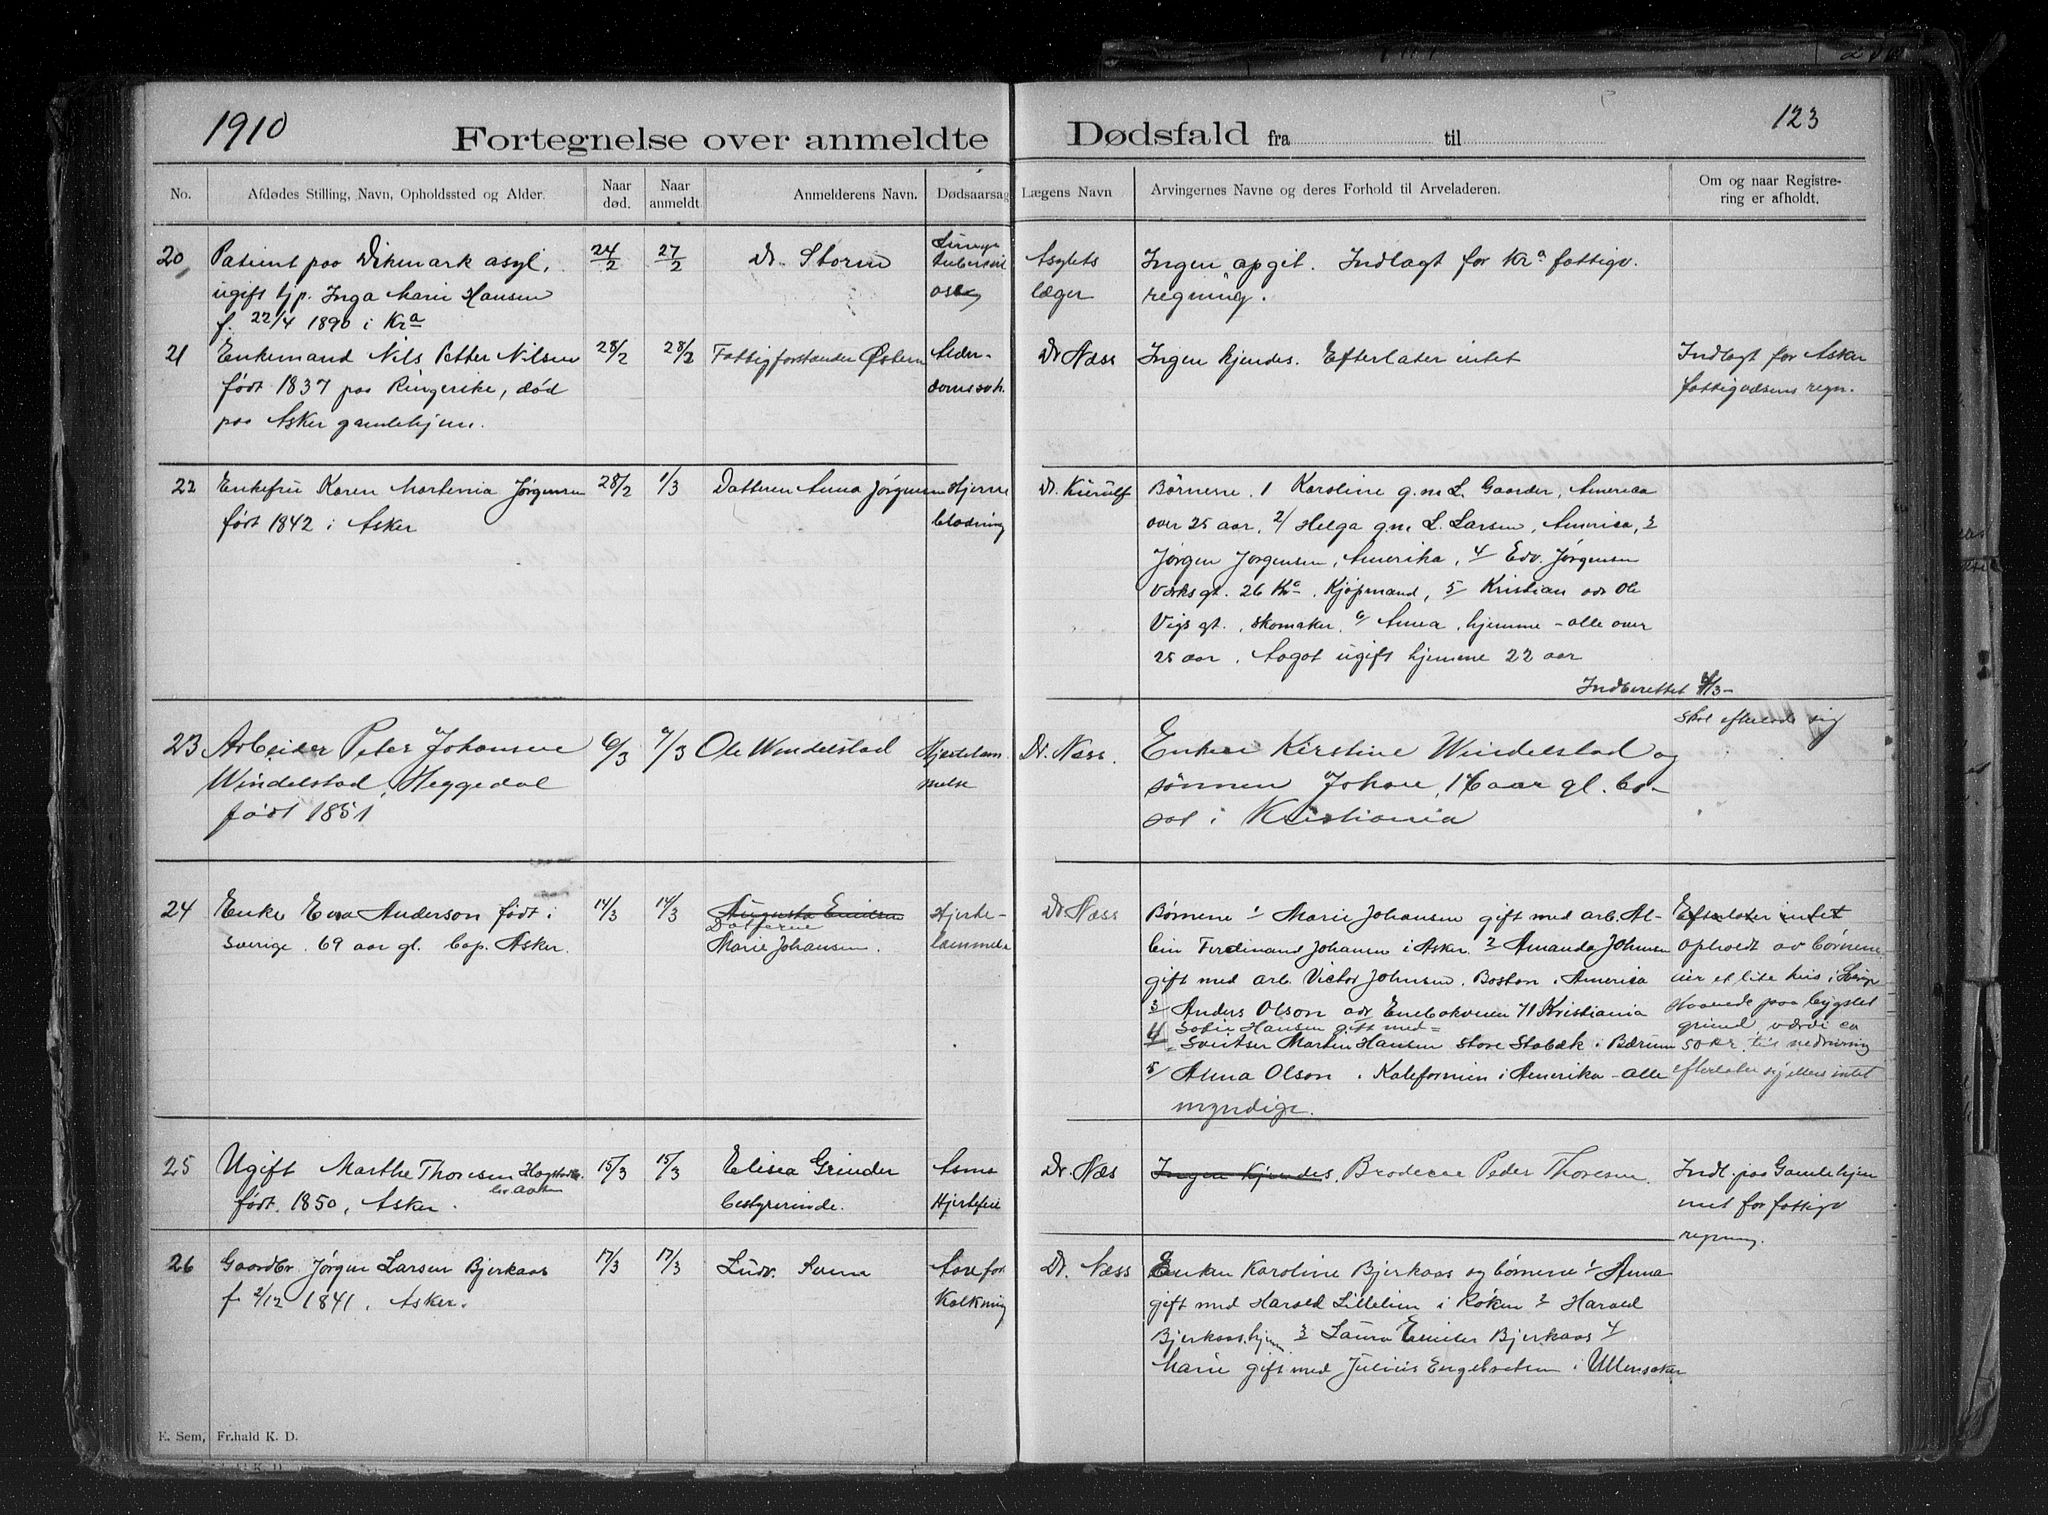 1910
123
Fortegnelse over anmeldte Dødsfald fra til
No. Afdødes Stilling, Navn, Opholdssted og Alder. Naar død. Naar anmeldt Anmelderens Navn. Dødsaarsag Lægens Navn Arvingernes Navne og deres Forhold til Arveladeren. Om og naar Registrering er afholdt.
20 Patient paa Dikmark asyl, 24/2 27/2 Dr. Storm Lunge Asylets Ingen opgit. Indlagt for Kra fattigv.
ugift tjp. Inga Marie Hansen læger regning.
f. 22/4 1890 i Kra
21 Enkemand Nils Petter Nilsen 28/2 28/2 Fattigforstander Østern Alder- Dr Næss Ingen kjendes. Efterlater intet Indlagt for Asker
født 1837 paa Ringerike, død domssvk. fattigvæsens regn.
paa Asker gamlehjem.
22 Enkefru Karen Martinia Jørgensen 28/2 1/3 Datteren Anna Jørgensen Hjerne Dr. Kierulf Børnene. 1 Karoline g.m. L. Gaarder, America
født 1842 i Asker blødning over 25 aar, 2/ Helga gm. L. Larsen, America, 3
Jørgen Jørgensen, Amerika, 4/ Edv. Jørgensen
26 Kra. Kjøpmand, 5/ Kristian adr Ole
Vigs gt., skomaker, 6/ Anna, hjemme - alle over
25 aar. Aagot ugift hjemme 22 aar
Indberettet /3-
23 Arbeider Peter Johansen 6/3 /3 Ole Windelstad Hjertelam- Dr. Næss. Enken Kirstine Windelstad og skal efterlade sig
Windelstad, Heggedal melse sønnen Johan, 16 aar gl. bo-
født 1851 sat i Kristiania
24 Enke Eva Anderson født i 14/3 14/3 Augusta Emilsen Hjerte- Dr Næss Børnene 1 Marie Johansen gift med arb. Al- Efterlater intet
Sverige. 69 aar gl. bop. Asker. Datteren lammelse bin Ferdinand Johansen i Asker. 2 Amanda Johnsen opholdt av børnene
Marie Johansen. gift med arb. Victor Johnsen. Boston. America eier et lite hus i Sverige
3/ Anders Olson adr Enebakveien 71 Kristiania staaende paa bygslet
4/ Sofie Hansen gift med grund, værdi ca
Sveitser Martin Hansen Store Stabæk i Bærum 50 kr. til nedrivning
5/ Anna Olson. Kalefornien i Amerika - alle efterlater sig ellers intet
myndige.
25 Ugift Marthe Thoresen 15/3 15/3 Elisea Grinder Asma Dr Næs Ingen kjendes. Broderen Peder Thoresen. Indl. paa Gamlehjem
født. 1850, Asker. bestyrerinde. Hjertefeil met for fattigv
regning.
26 Gaardbr. Jørgen Larsen Bjerkaas 17/3 17/3 Ludv. Aarefor Dr. Næss Enken Karoline Bjerkaas og børnene 1/ Anna
f. 2/12 1841. Asker. kalkning gift med Harald Lillelien i Røken 2 Harald
Bjerkaas hjem. 3 Laura Emilie Bjerkaas 4
Marie gift med Julius Engebretsen i Ullensaker
E. Sem, Fr.hald K. D.